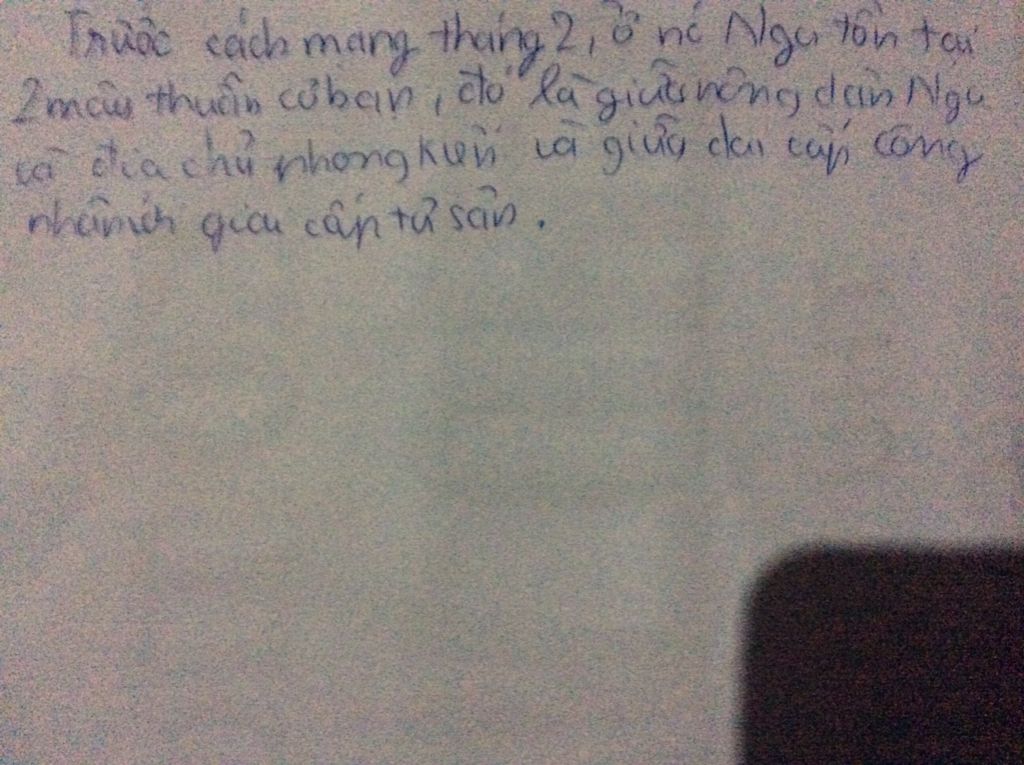 Trước cách mạng tháng 2, ở nc Nga tồn tại
2 mâu thuẫn cơ bản, đó là giữa nông dân Nga
và địa chủ phong kiến và giữa dai cấp công
nhân với giai cấp tư sản.